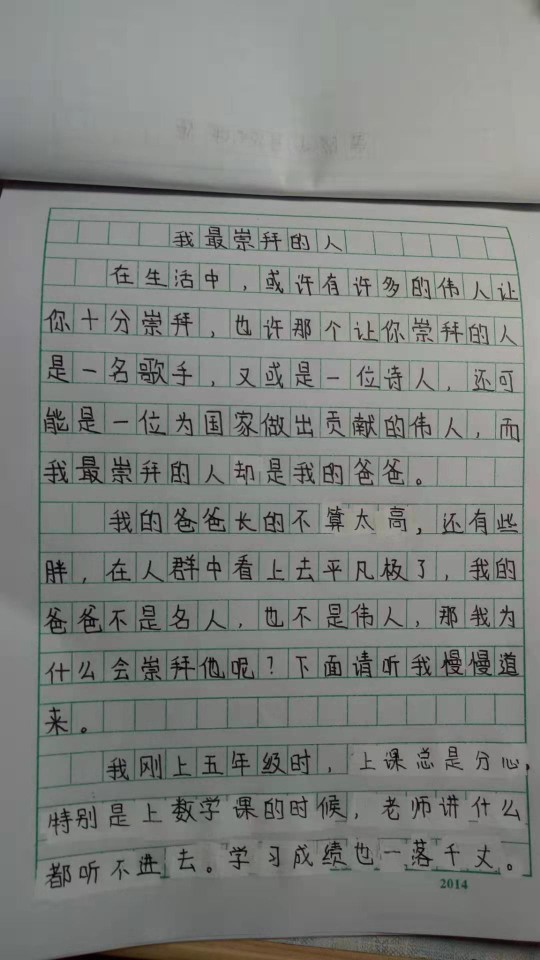 我最崇拜的人
在生活中，或许有许多的伟人让
你十分崇拜，也许那个让你崇拜的人
是一名歌手，又或是一位诗人，还可
能是一位为国家做出贡献的伟人，而
我最崇拜的人却是我的爸爸。
我的爸爸长的不算太高，还有些
胖，在人群中看上去平凡极了，我的
爸爸不是名人，也不是伟人，那我为
什么会崇拜他呢？下面请听我慢慢道
来。
我刚上五年级时，上课总是分心，
特别是上数学课的时候，老师讲什么
都听不进去。学习成绩也一落千丈。
2014